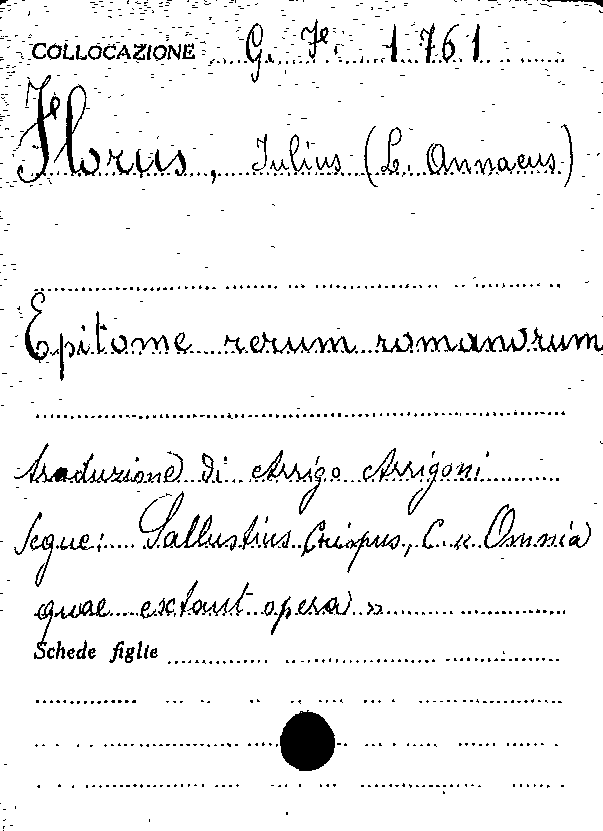 COLLOCAZIONE G. F. 1761
Florus, Julius (L. Annaeus)
Epitome rerum romanorum
traduzione di Arrigo Arrigoni
Segue: Sallustius Crispus, C. « Omnia
quae extant opera »
Schede figlie